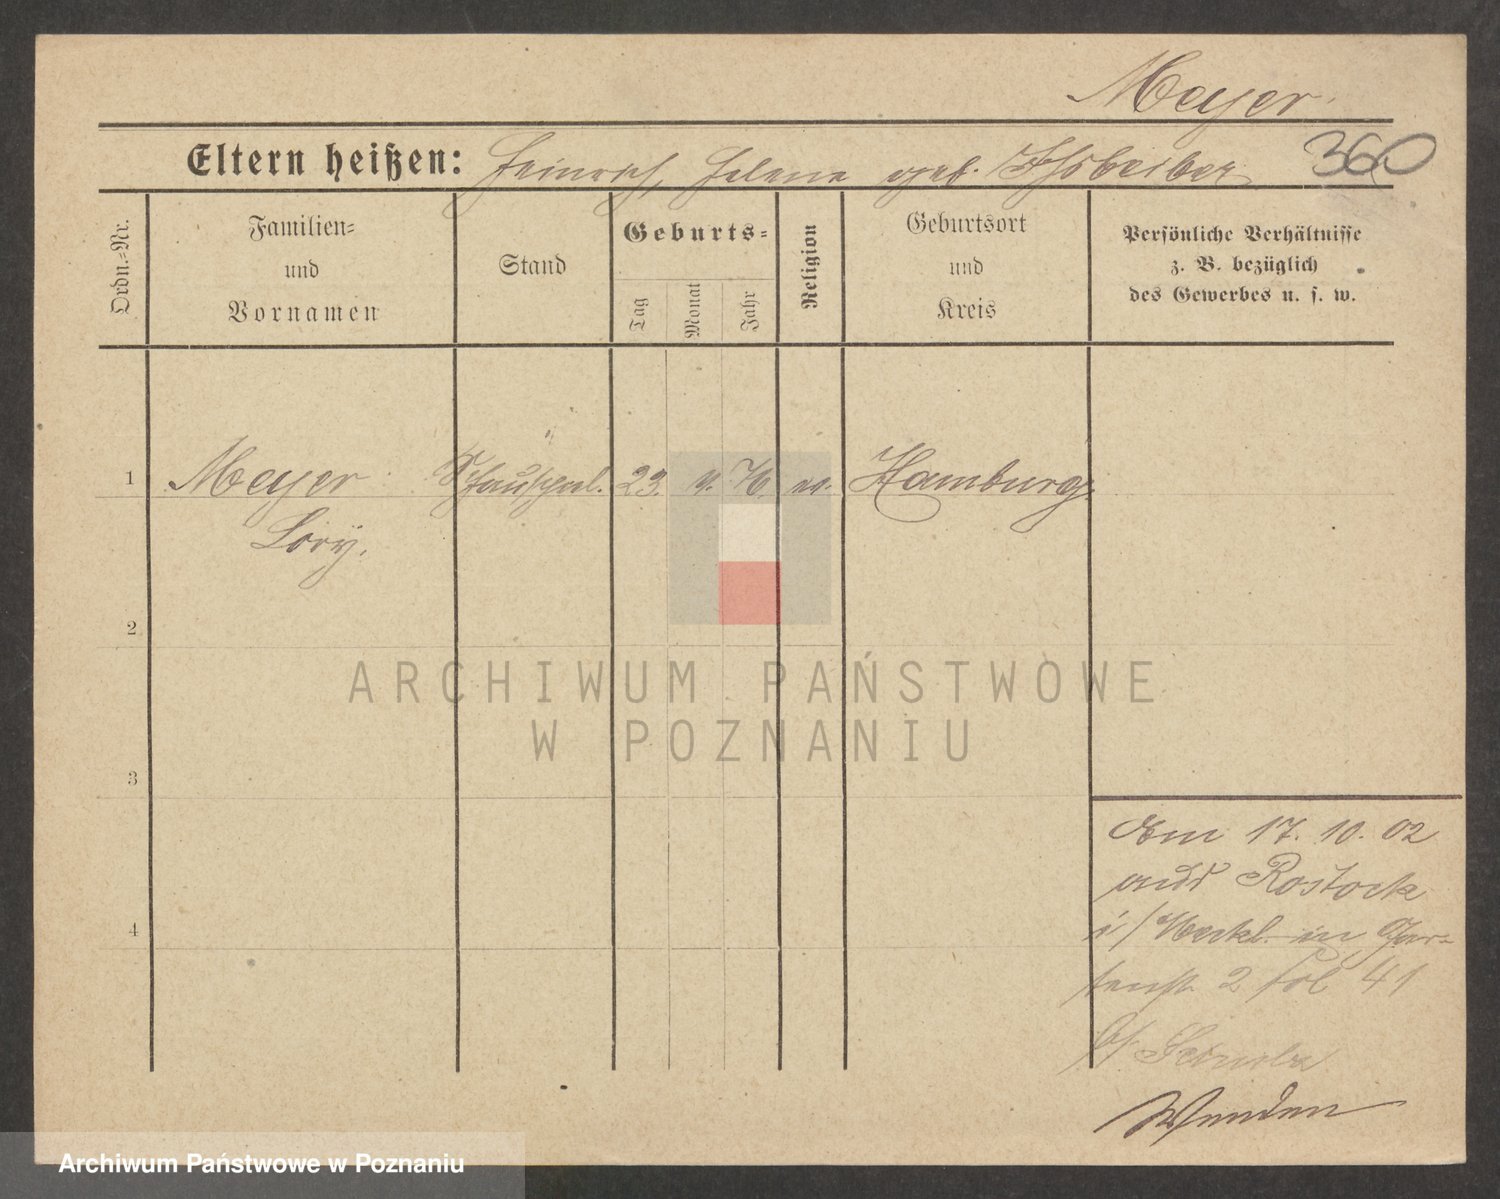 Meyer
360
Eltern heißen: Heinrich, Helene geb.
Ordn.-Nr.
Familien-
und
Vornamen
Stand
Geburts-
Tag
Monat
Jahr
Religion
Geburtsort
und
Kreis
Persönliche Verhältnisse
z. B. bezüglich
des Gewerbes u. s. w.
1 Meyer Schauspiel. 23. 9. 76. ev. Hamburg
Lory.
2
3
4
Am 17. 10. 02
aus Rostock
i/Meckl. in Gar-
tenstr. 2 fol 41
b/
ARCHIWUM PAŃSTWOWE
W POZNANIU
Archiwum Państwowe w Poznaniu